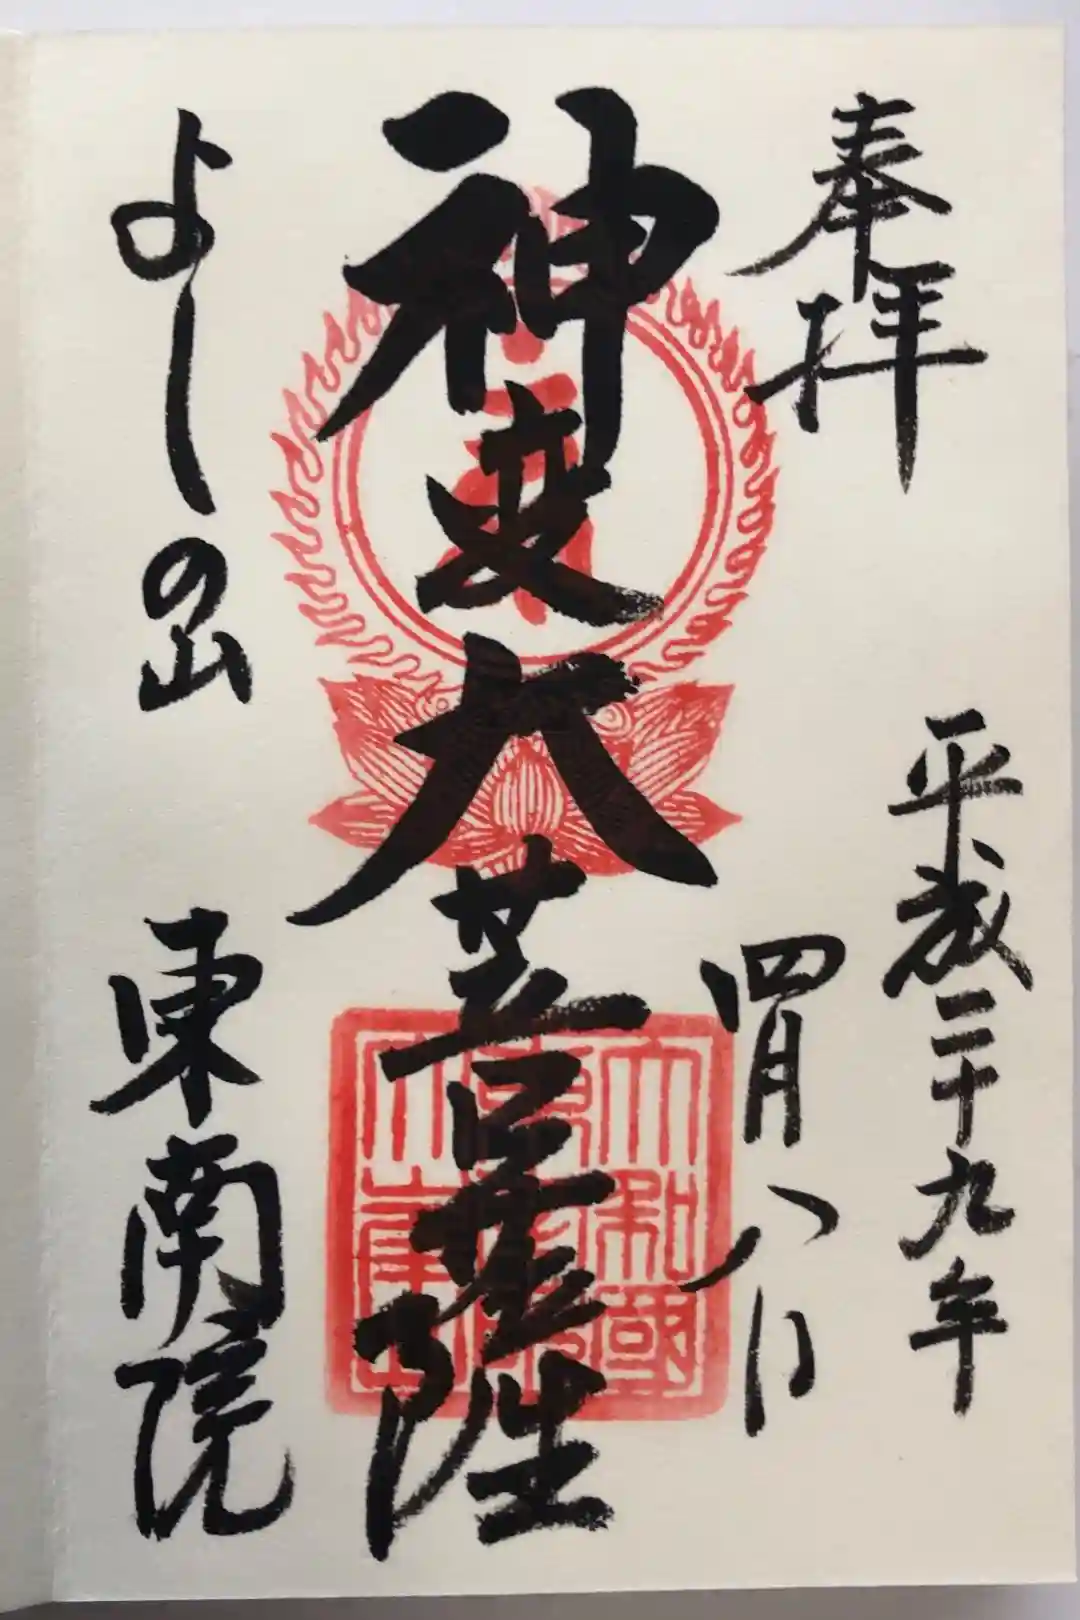 奉拝
平成二十九年
四月八日
神変大菩薩
よしの山
東南院
大和國